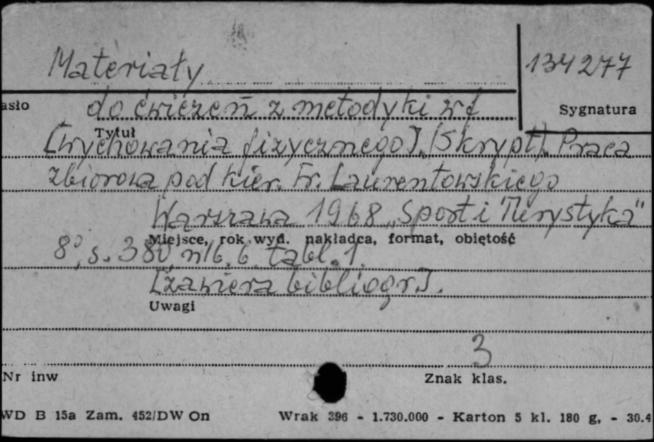 Materiały 134277
asło do ćwiczeń z metodyki wf Sygnatura
Tytuł
[wychowania fizycznego]. (Skrypt). Praca
zbiorowa pod kier. Fr. Laurentowskiego
Warszawa 1968 „Sport i Turystyka"
Miejsce, rok wyd. nakładca, format, objętość
8°, s. 380 nlb. 6 tabl. 1.
[zawiera bibliogr.].
Uwagi
3
Nr inw Znak klas.
WD B 15a Zam. 452/DW On Wrak 396 - 1.730.000 - Karton 5 kl. 180 g, - 30.4